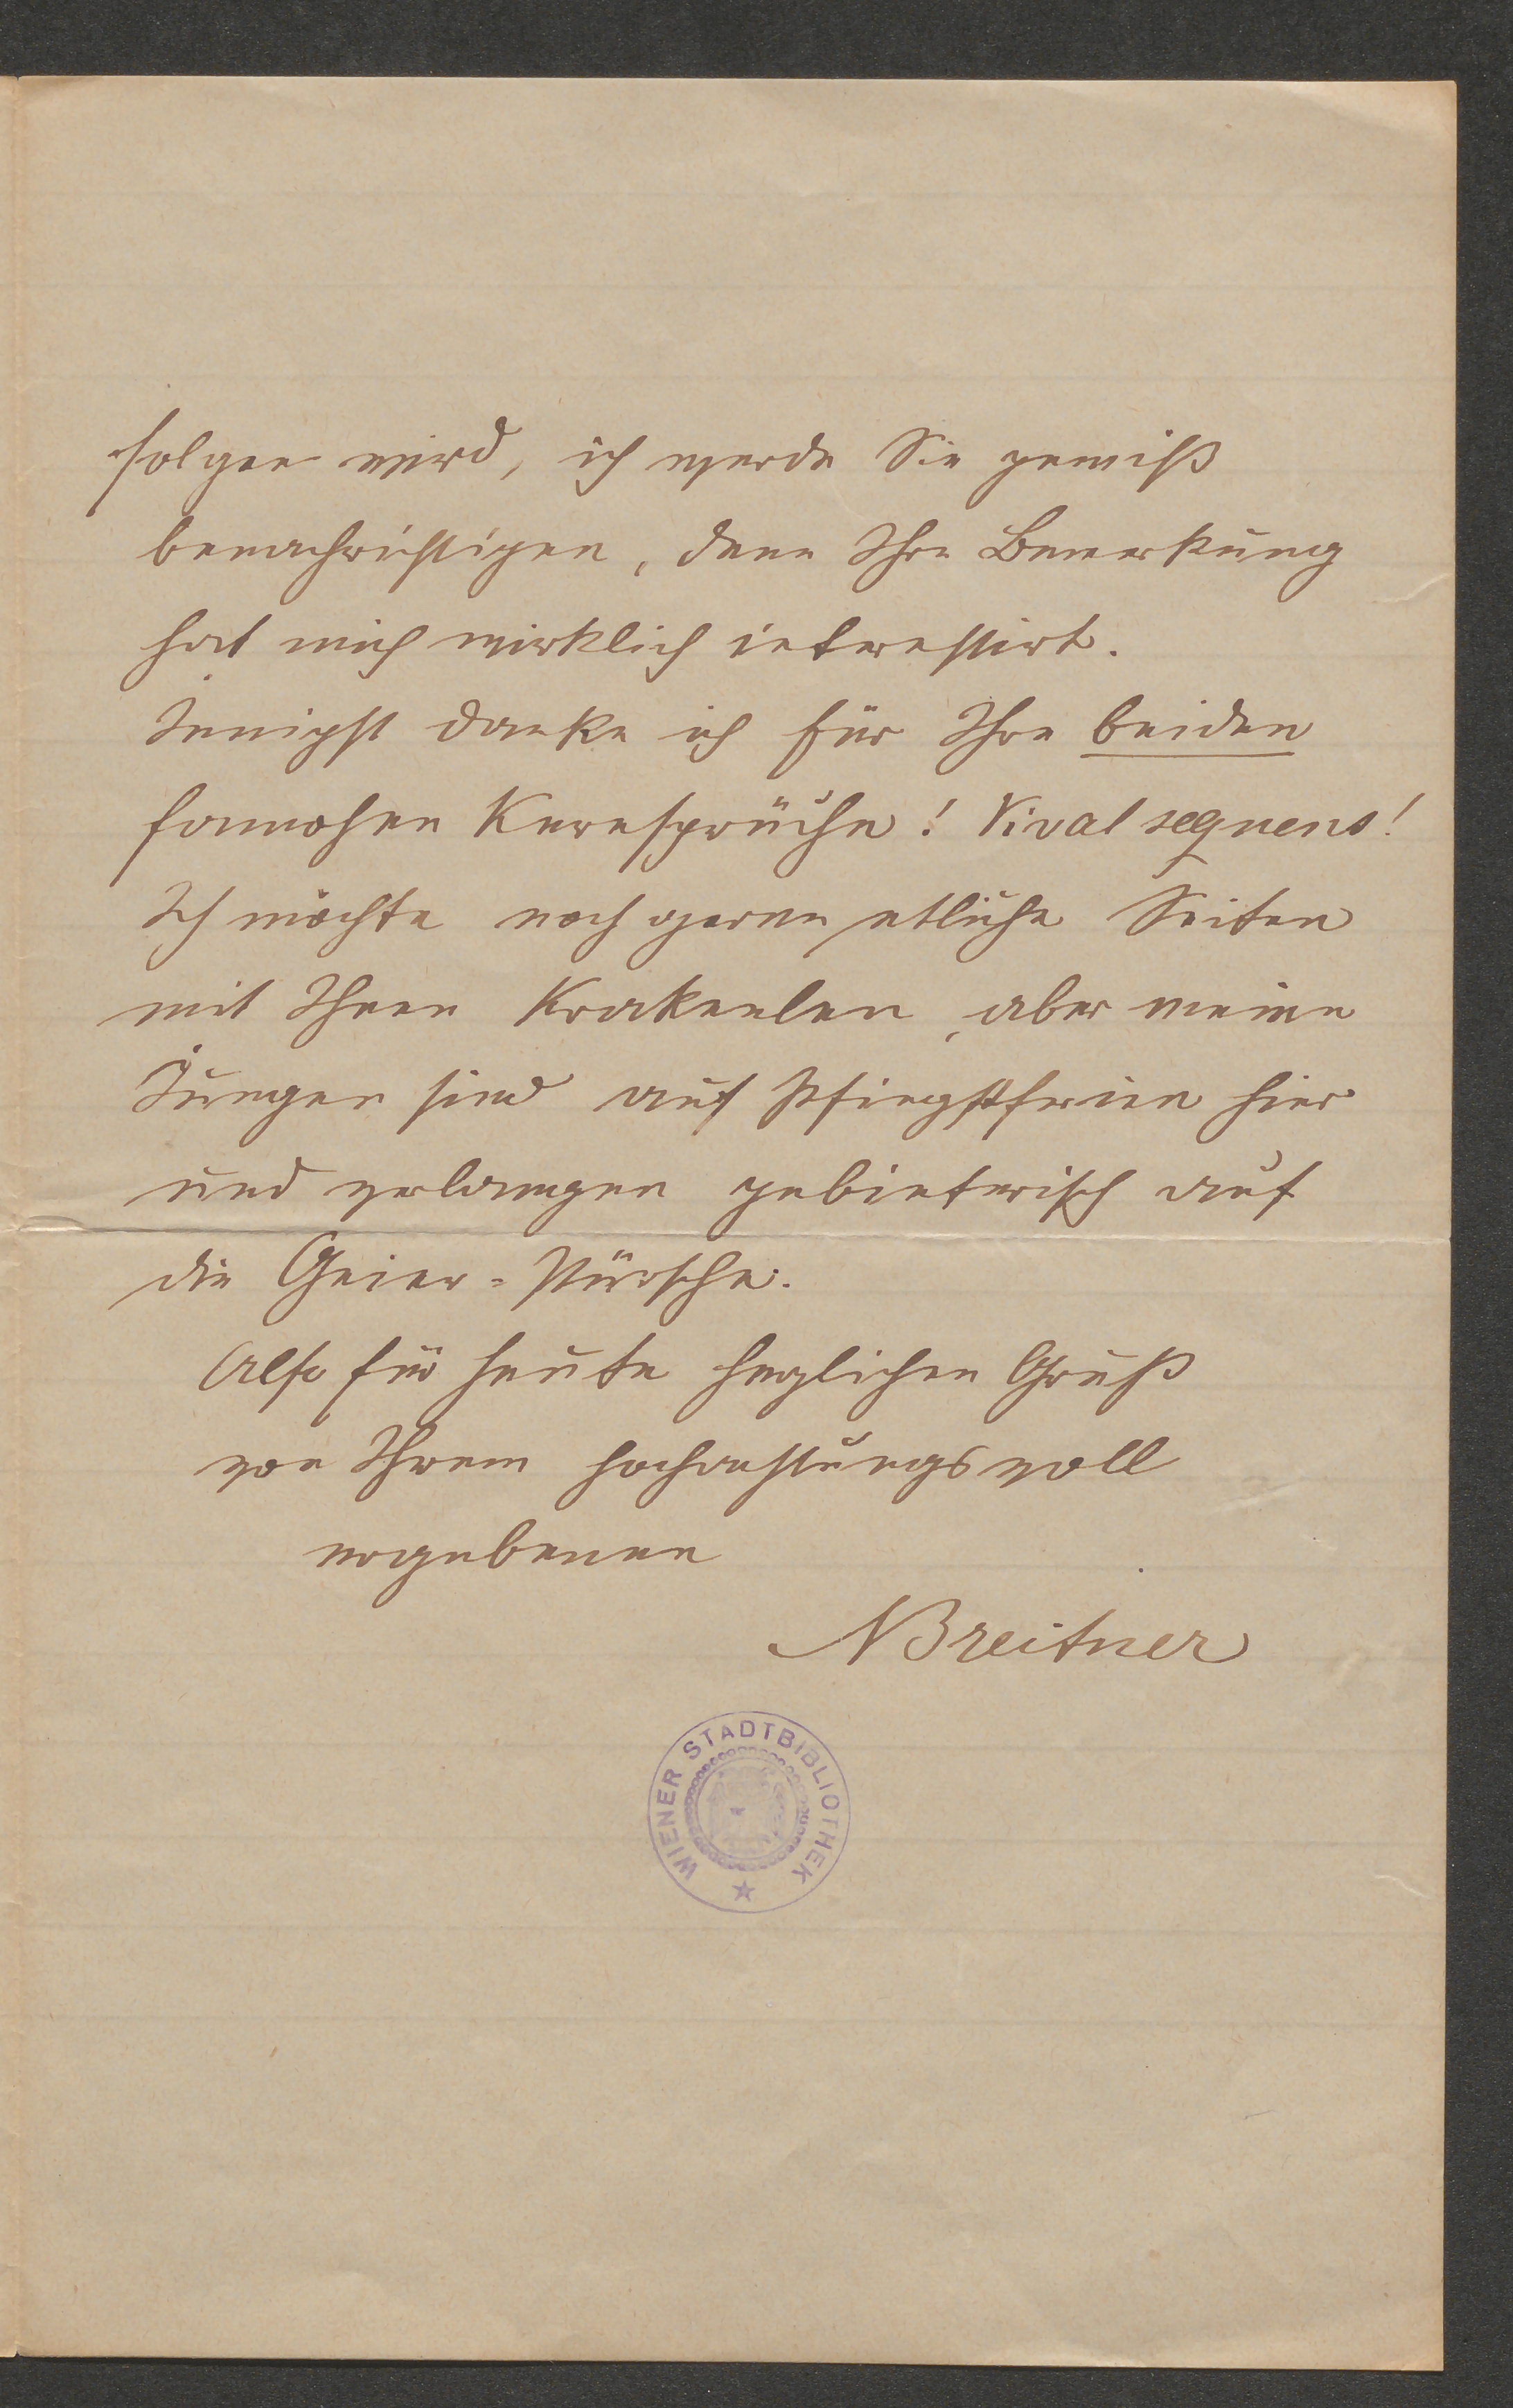 folgen wird, ich werde Sie gewiß
benachrichtigen, denn Ihre Bemerkung
hat mich wirklich interessirt.
Innigst danke ich für Ihre beiden
famosen Kernsprüche! Vivat sequens!
Ich möchte noch gerne etliche Seiten
mit Ihnen Krakeelen, aber meine
Jungen sind auf Pfingstferien hier
und verlangen gebieterisch auf
die Geier-Pürsche.
Also für heute herzlichen Gruß
von Ihrem hochachtungsvoll
ergebenen
Breitner
WIENER STADTBIBLIOTHEK